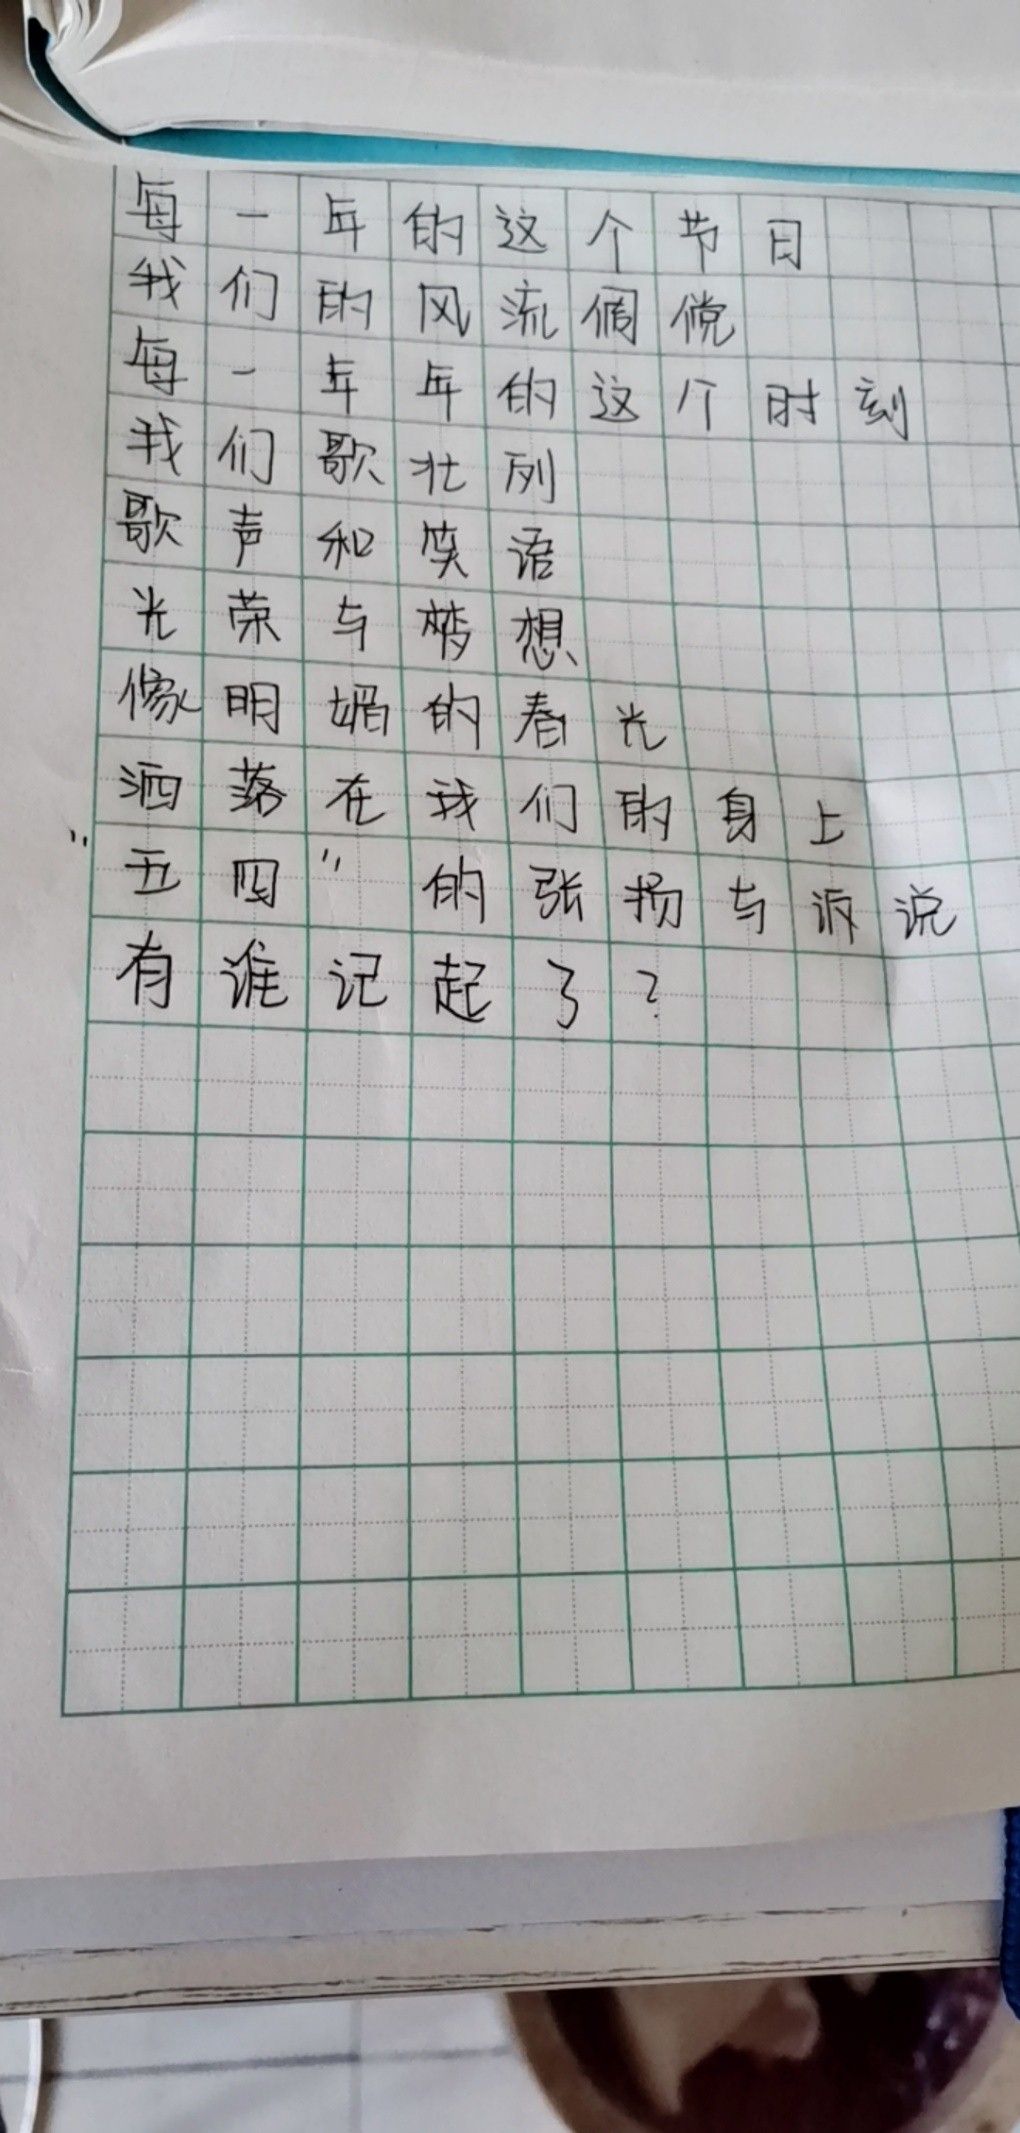 每一年的这个节日
我们的风流倜傥
每一年年的这个时刻
我们歌壮列
歌声和笑语
光荣与梦想
像明媚的春光
洒落在我们的身上
"五四"的张扬与诉说
有谁记起了?